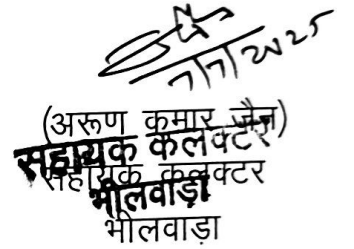 7/7/2025
(अरूण कुमार जैन)
सहायक कलेक्टर
सहायक कलक्टर
भीलवाड़ा
भीलवाड़ा